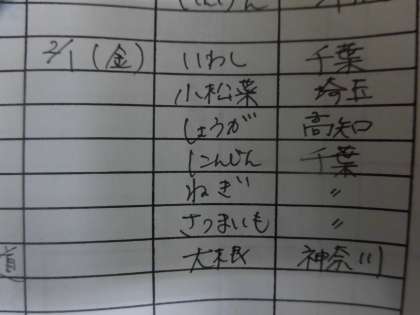 2/1(金) いわし 千葉
小松菜 埼玉
しょうが 高知
にんじん 千葉
ねぎ 〃
さつまいも 〃
大根 神奈川